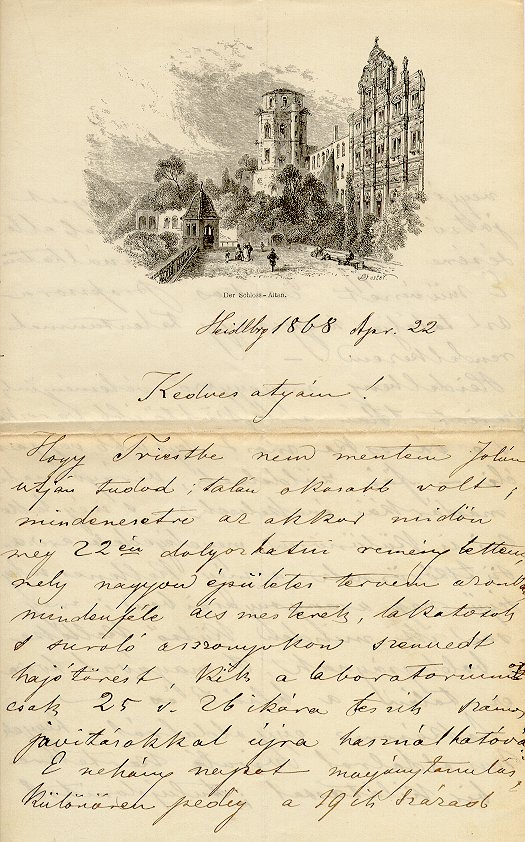 Der Schloss-Altan.
Heidlbrg 1868 Apr. 22
Kedves atyám!
Hogy Triestbe nem mentem Jolán
utján tudod; talán okosabb volt;
mindenesetre az akkor midőn
még 22 én dolgozhatni reménylettem,
mely nagyon épületes tervem azonban
mindenféle ács mesterek, lakatosok
s suroló asszonyokon szenvedt
hajótörést, kik a laboratoriumot
csak 25 v. 26 ikára teszik számos
javitásokkal újra használhatóvá
E nehány napot magánytanulás,
különösen pedig a 19ik század